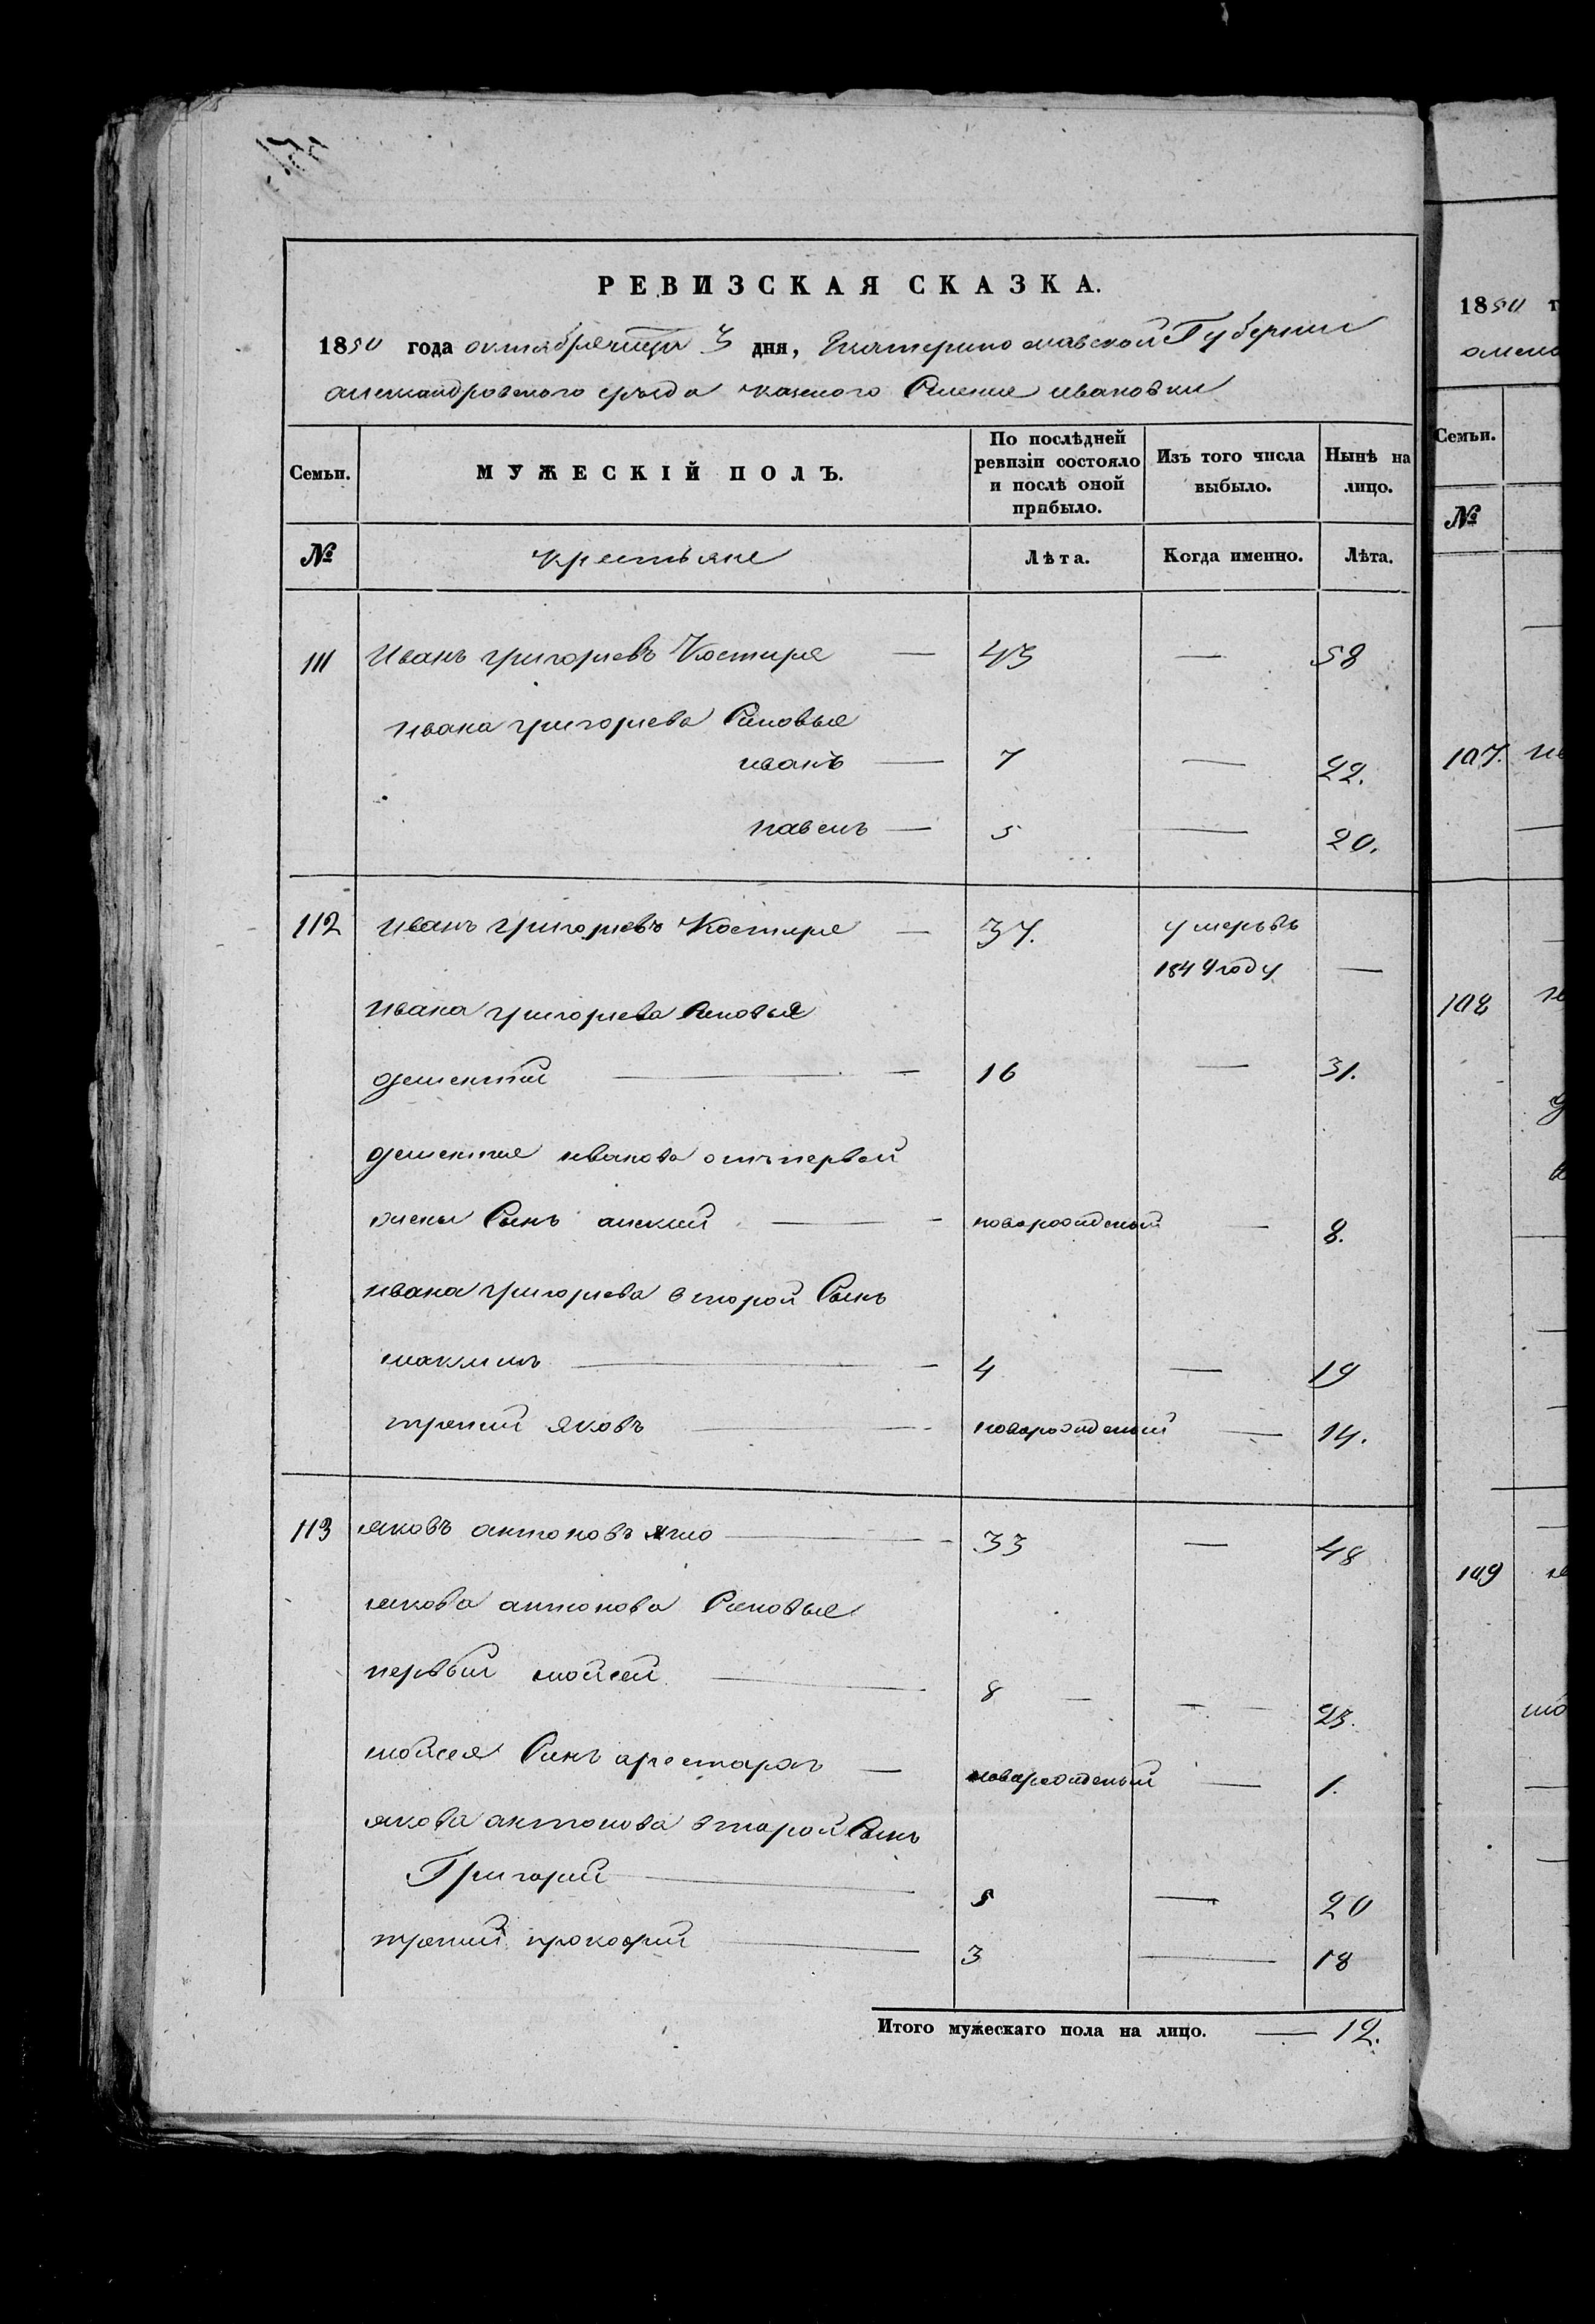 РЕВИЗСКАЯ СКАЗКА.
1850 года октября 3 дня, Екатеринославской Губернии
александровского уезда казеного Селения ивановки
Семьи.
МУЖЕСКІЙ ПОЛЪ.
По послѣдней ревизіи состояло и послѣ оной прибыло.
Изъ того числа выбыло.
Нынѣ на лицо.
№ крестьяне Лѣта. Когда именно. Лѣта.
111 Иванъ григорьевъ Костиря — 43 — 58
ивана григорьева Синовья
иванъ — 7 — 22.
павелъ — 5 — 20.
112 иванъ григорьевъ Костиря — 37. умеръ въ
1844 году —
ивана григорьева Синовья
дементий — 16 — 31.
дементия иванова отъ первой
жены Сынъ — новорожденый — 8.
ивана григорьева второй Сынъ
максимъ — 4 — 19
третий яковъ — новорожденый — 14.
113 яковъ антоновъ — 33 — 48
якова антонова Синовья
первый мойсей — 8 — — 23.
мойсея Синъ — новорожденый — 1.
якова антонова второй Сынъ
Григорий — 5 — 20
третий прокофий — 3 — 18
Итого мужескаго пола на лицо. — 12.
1850
Семьи.
№
107.
108
109